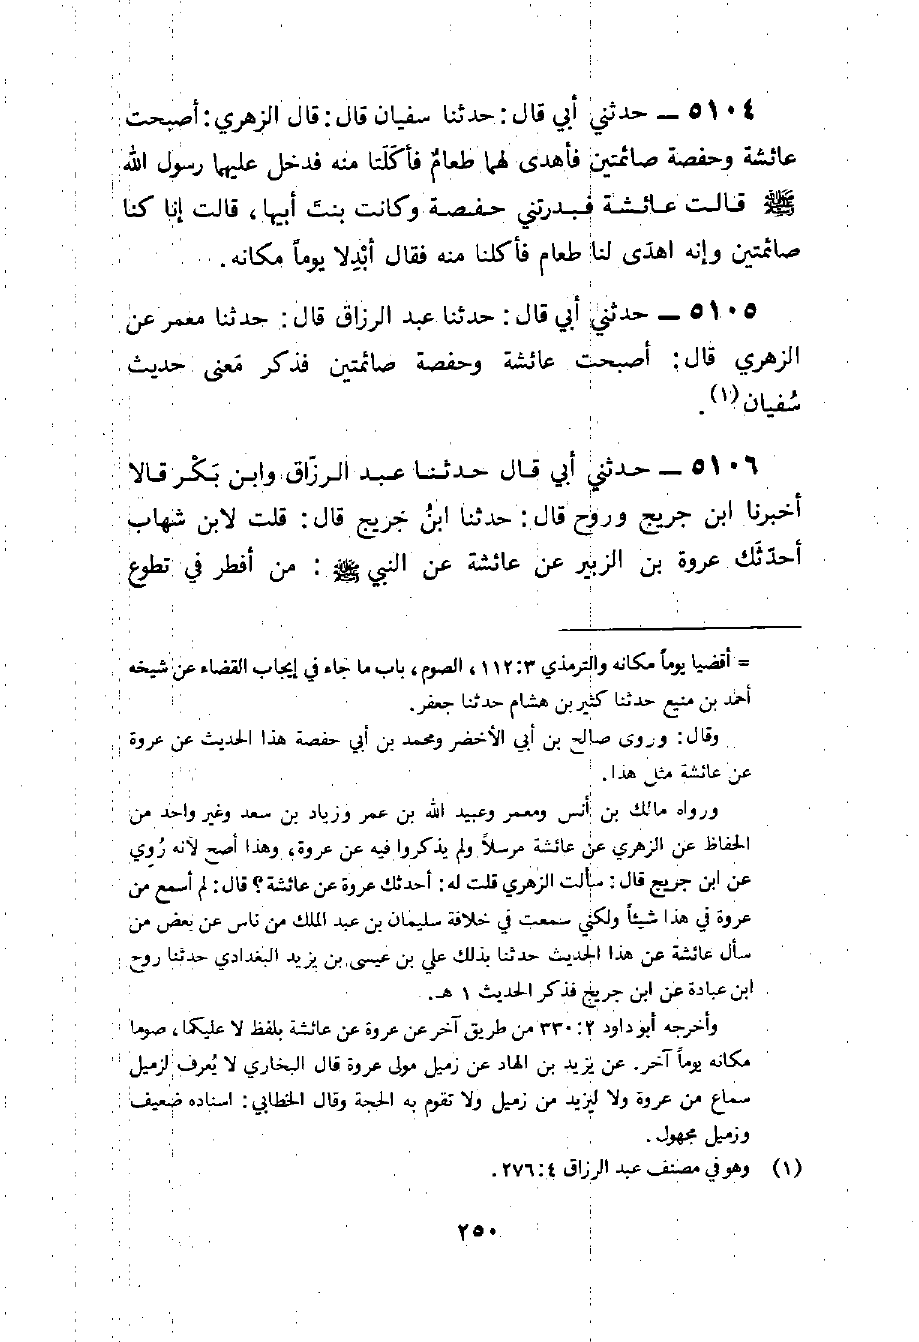 ٥١٠٤ ــ حدثني أبي قال : حدثنا سفيان قال : قال الزهري : أصبحت
عائشة وحفصة صائمتين فأهدى لهما طعامٌ فأكَلَتا منه فدخل عليهما رسول الله
ﷺ قالت عائشة فبدرتني حفصة وكانت بنتَ أبيها ، قالت إنا كنا
صائمتين وإنه اهدَى لنا طعام فأكلنا منه فقال أبْدِلا يوماً مكانه .
٥١٠٥ ــ حدثني أبي قال : حدثنا عبد الرزاق قال : حدثنا معمر عن
الزهري قال : أصبحت عائشة وحفصة صائمتين فذكر مَعنى حديث
سُفيان (١) .
٥١٠٦ ــ حدثني أبي قال حدثنا عبد الرزّاق وابن بَكْر قالا
أخبرنا ابن جريج وروح قال : حدثنا ابنُ جريج قال : قلت لابن شهاب
أحدّثَك عروة بن الزبير عن عائشة عن النبي ﷺ : من أفطر في تطوع
= أقضيا يوماً مكانه والترمذي ٣ : ١١٢ ، الصوم ، باب ما جاء في إيجاب القضاء عن شيخه
أحمد بن منيع حدثنا كثير بن هشام حدثنا جعفر .
وقال : وروى صالح بن أبي الأخضر ومحمد بن أبي حفصة هذا الحديث عن عروة
عن عائشة مثل هذا .
ورواه مالك بن أنس ومعمر وعبيد الله بن عمر وزياد بن سعد وغير واحد من
الحفاظ عن الزهري عن عائشة مرسلاً ولم يذكروا فيه عن عروة ، وهذا أصح لأنه رُوي
عن ابن جريج قال : سألت الزهري قلت له : أحدثك عروة عن عائشة ؟ قال : لم أسمع من
عروة في هذا شيئاً ولكني سمعت في خلافة سليمان بن عبد الملك من ناس عن بعض من
سأل عائشة عن هذا الحديث حدثنا بذلك علي بن عيسى بن يزيد البغدادي حدثنا روح
ابن عبادة عن ابن جريج فذكر الحديث ١ هـ .
وأخرجه أبو داود ٢ : ٣٣٠ من طريق آخر عن عروة عن عائشة بلفظ لا عليكما ، صوما
مكانه يوماً آخر . عن يزيد بن الهاد عن زميل مولى عروة قال البخاري لا يُعرف لزميل
سماع من عروة ولا ليزيد من زميل ولا تقوم به الحجة وقال الخطابي : اسناده ضعيف
وزميل مجهول .
(١) وهو في مصنف عبد الرزاق ٤ : ٢٧٦ .
٢٥٠